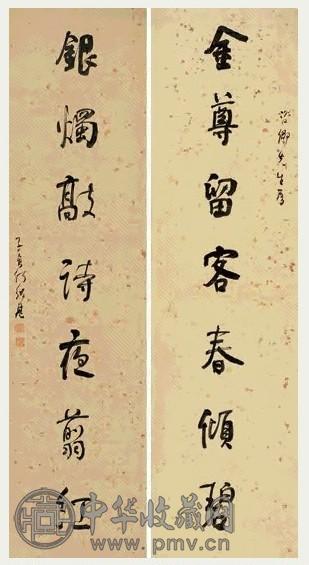 金尊留客春傾碧
先生
銀燭敲詩夜翦紅
子貞何紹基
中华收藏网
www.pmv.cn